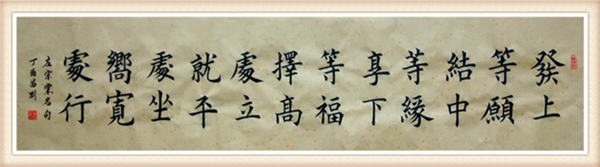 發上
等願
結中
等緣
享下
等福
擇高
處立
就平
處坐
嚮寬
處行
左宗棠名句
丁酉